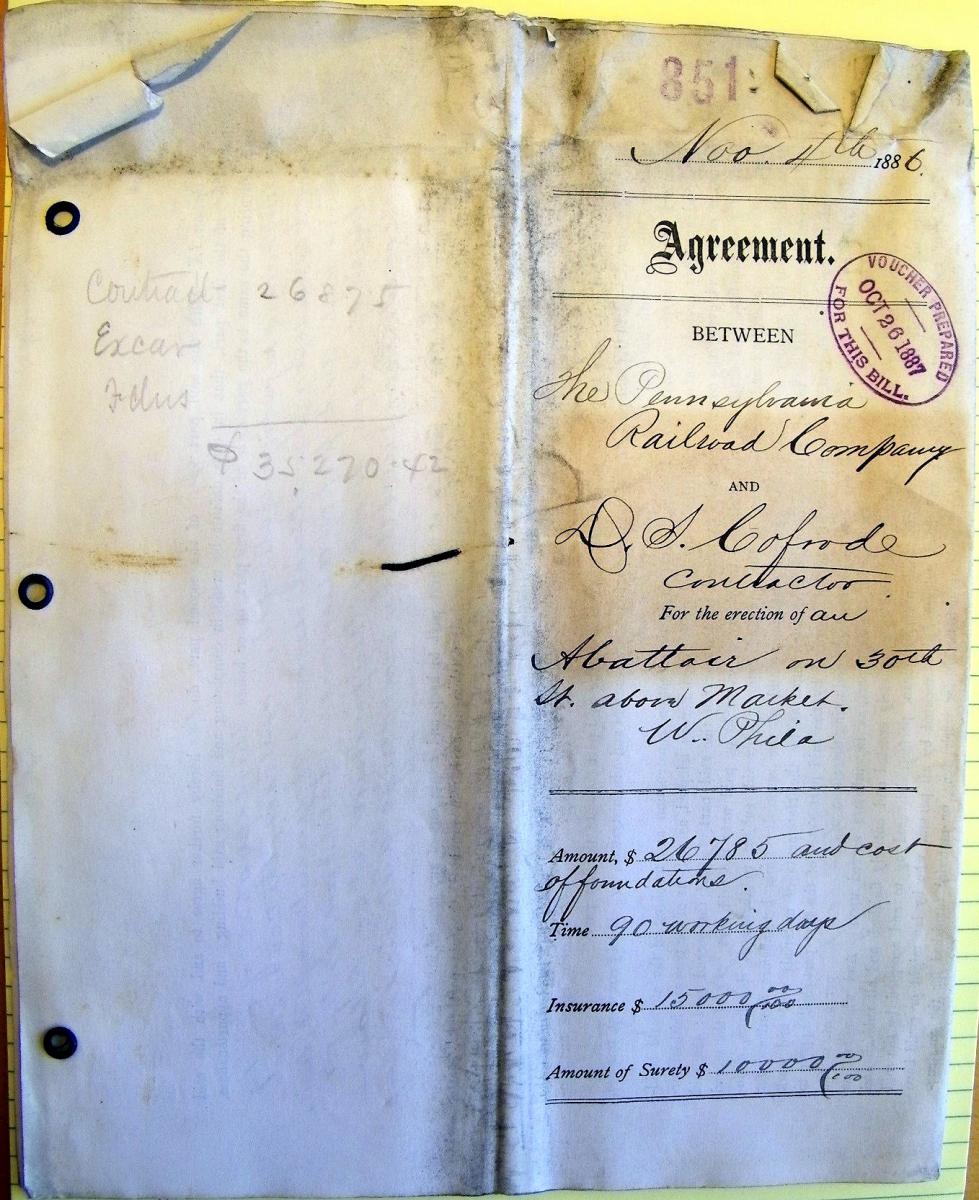 Contract 26875
Excav
Fdns
$35,270.42
851
Nov. 4th 1886.
Agreement.
VOUCHER PREPARED
OCT 26 1887
FOR THIS BILL.
BETWEEN
The Pennsylvania
Railroad Company
AND
D. S. Cofrode
Contractor
For the erection of an
Abattair on 30th
St. above Market.
W. Phila
Amount, $ 26785 and cost
of foundations.
Time 90 working days
Insurance $ 15000 00/100
Amount of Surety $ 10000 00/100